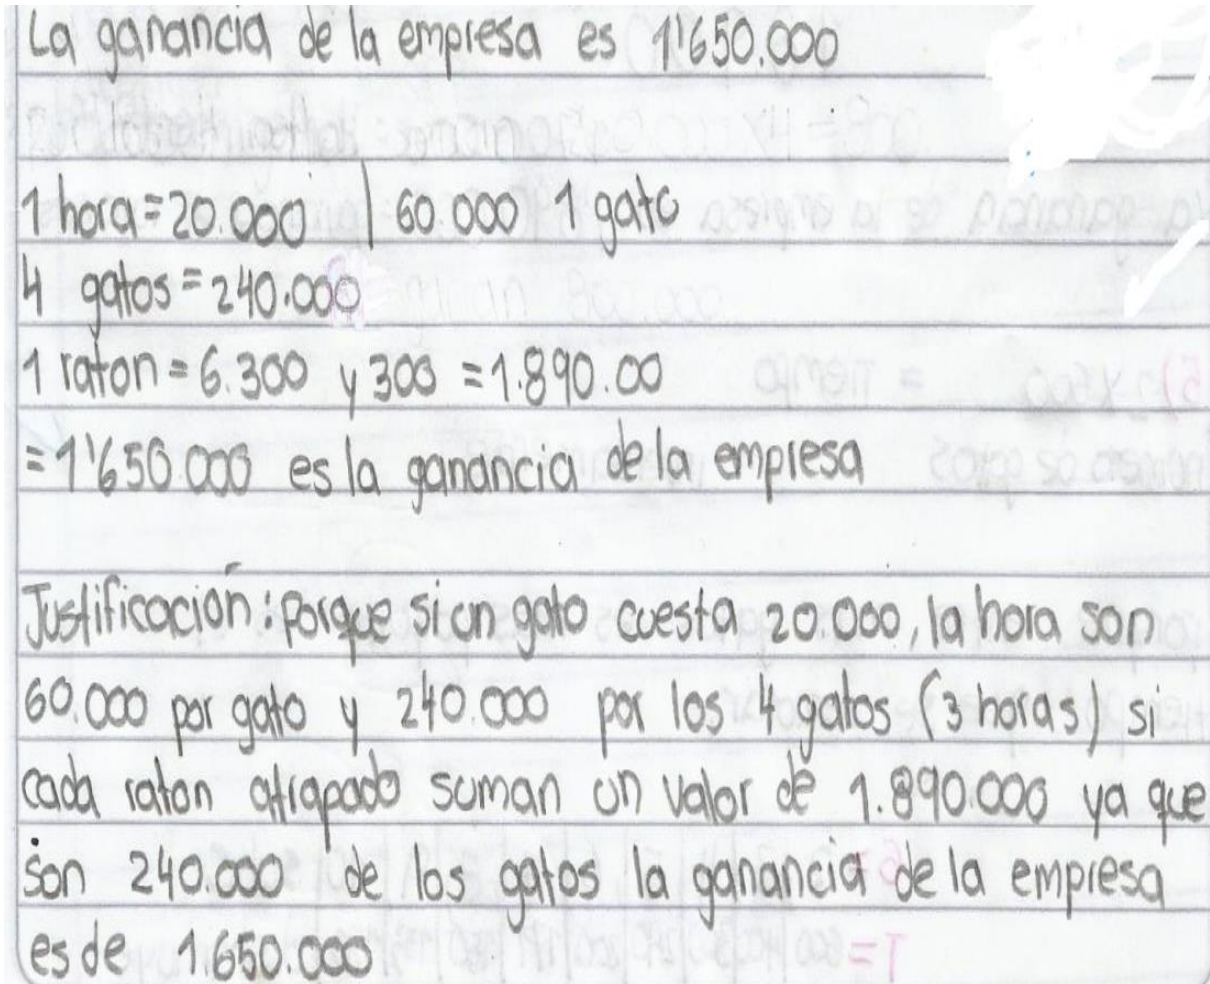 La ganancia de la empresa es 1'650.000
1 hora = 20.000 | 60.000 1 gato
4 gatos = 240.000
1 raton = 6.300 y 300 = 1.890.00
= 1'650.000 es la ganancia de la empresa
Justificación: porque si un gato cuesta 20.000, la hora son
60.000 por gato y 240.000 por los 4 gatos (3 horas) si
cada raton atrapado suman un valor de 1.890.000 ya que
son 240.000 de los gatos la ganancia de la empresa
es de 1.650.000